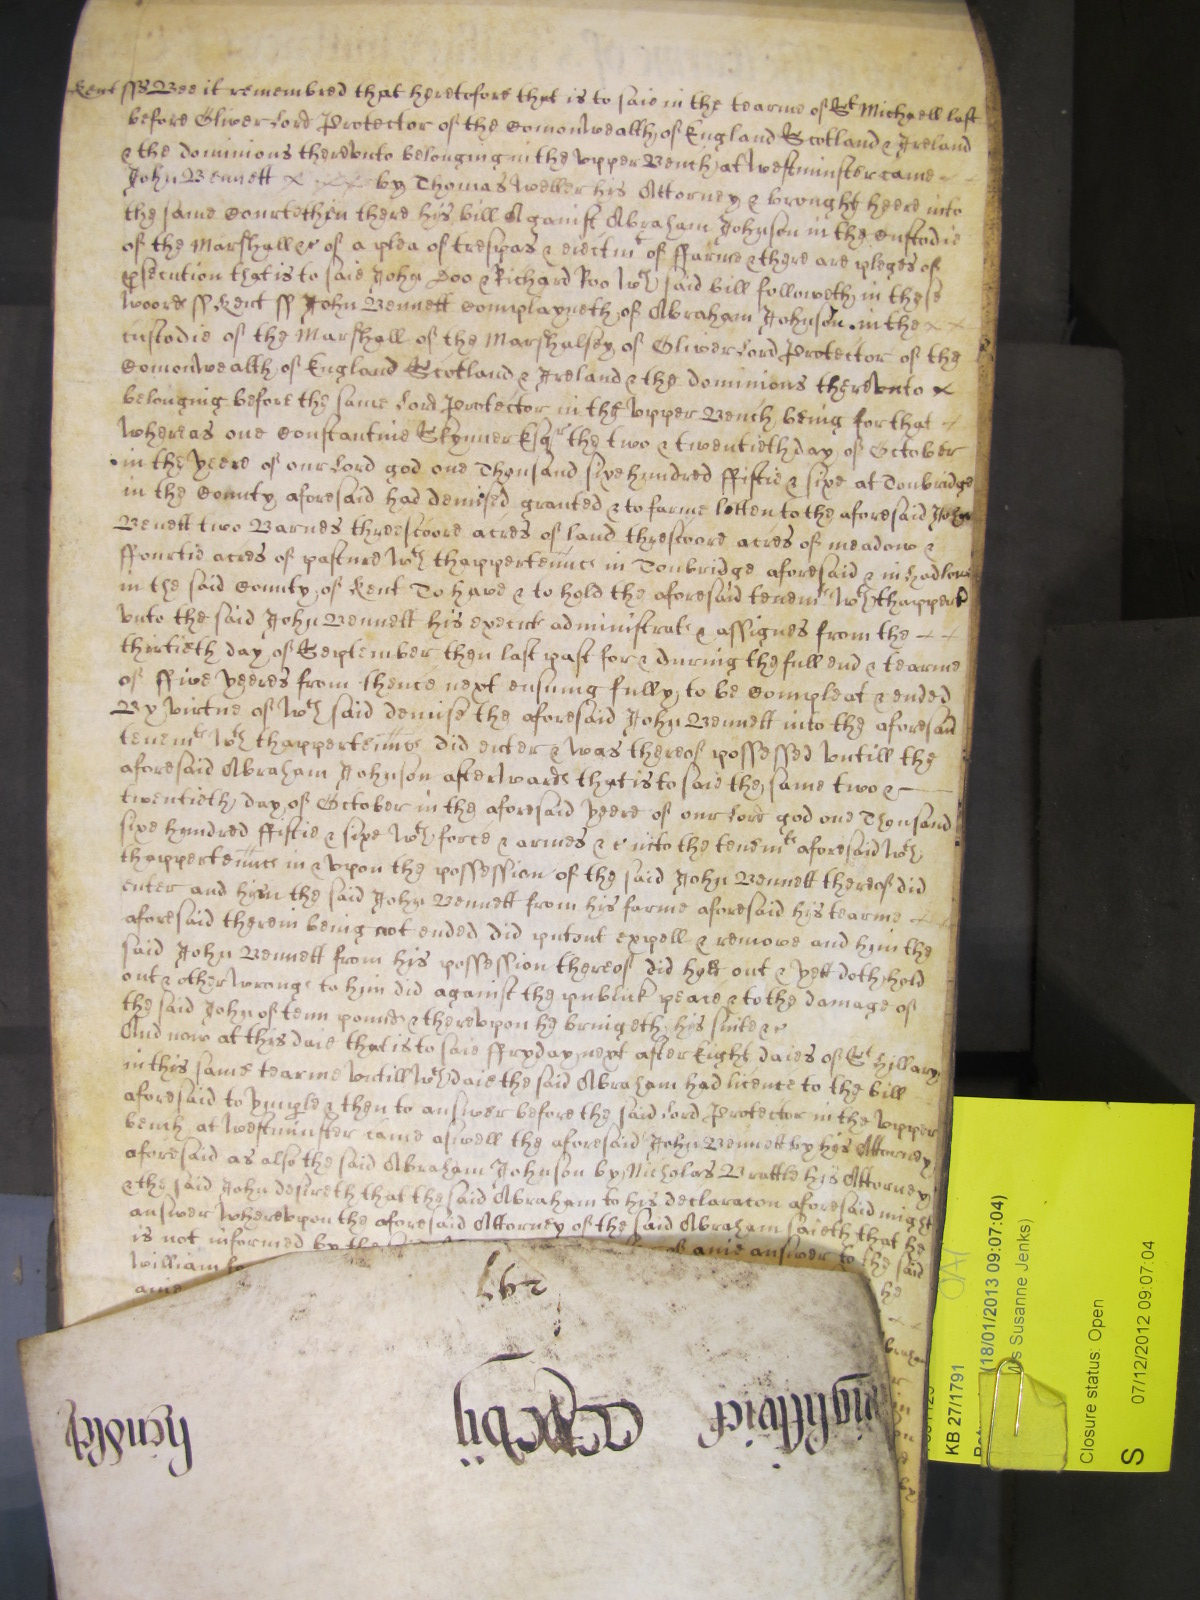 Kent ss Bee it remembred that heretofore that is to saie in the tearme of St Michaell last
before Oliver Lord Protector of the Comonwealth of England Scotland & Ireland
& the dominions therevnto belonging in the vpper Bench at Westminster came
John Bennett by Thomas Weller his Attorney & brought heere into
the same Court then there his bill Against Abraham Johnson in the Custodie
of the Marshall &c of a plea of trespas & eiectmt of ffarme & there are pleges of
psecution that is to saie John Doo & Richard Roo wch said bill followeth in these
woords ss Kent ss John Bennett Complayneth of Abraham Johnson in the
custodie of the Marshall of the Marshalsey of Oliver Lord Protector of the
Comonwealth of England Scotland & Ireland & the dominions therevnto
belonging before the same Lord Protector in the vpper Bench being for that
whereas one Constantine Skynner Esqr the two & twentieth day of October
in the yeere of our Lord god one Thousand sixe hundred ffiftie & sixe at Tonbridge
in the County aforesaid had demised granted & to farme letten to the aforesaid John
Benett two Barnes threescoore acres of land threscoore acres of meadow &
ffourtie acres of pasture wth thappertenncs in Tonbridge aforesaid & in hadlowe
in the said County of Kent To have & to hold the aforesaid tenemts wth thappert
vnto the said John Bennett his execrs administrats & assignes from the
thirtieth day of September then last past for & during the full end & tearme
of ffive yeeres from thence next ensuing fully to be Compleat & ended
By virtue of wch said demise the aforesaid John Bennett into the aforesaid
tenemts wth thappertenncs did enter & was thereof possessed vntill the
aforesaid Abraham Johnson afterwards that is to saie the same two &
twentieth day of October in the aforesaid yeere of our Lord god one Thousand
sixe hundred ffiftie & sixe wth force & armes & c into the tenemts aforesaid wth
thappertenncs in & vpon the possession of the said John Bennett thereof did
enter and him the said John Bennett from his farme aforesaid his tearme
aforesaid therein being not ended did putout expell & remove and him the
said John Bennett from his possession thereof did hold out & yett doth hold
out & other wrongs to him did against the publick peace & to the damage of
the said John of tenn pounds & therevpon he bringeth his suite &c
And now at this daie that is to saie ffryday next after Eight daies of St Hillary
in this same tearme vntill wch daie the said Abraham had licence to the bill
aforesaid to Imple & then to answer before the said Lord Protector in the vpper
bench at Westminster came aswell the aforesaid John Bennett by his Attorney
aforesaid as also the said Abraham Johnson by Nicholas Brattle his Attorney
& the said John desireth that the said Abraham to his declaracon aforesaid might
answer Wherevpon the aforesaid Attorney of the said Abraham saieth that he
is not informed by the anie answer to the said
William he
anie
297
hensley
KB 27/1791
(18/01/2013 09:07:04)
s Susanne Jenks)
Closure status: Open
S
07/12/2012 09:07:04